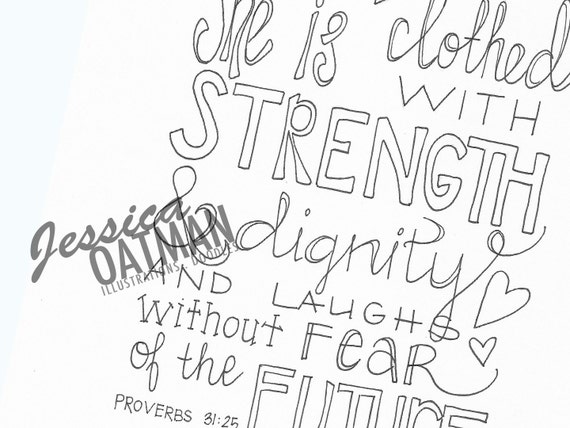 She is clothed
WITH
STRENGTH
& dignity
AND LAUGHS
without FEAR
of the FUTURE
PROVERBS 31:25
Jessica
OATMAN
ILLUSTRATIONS + DOODLES